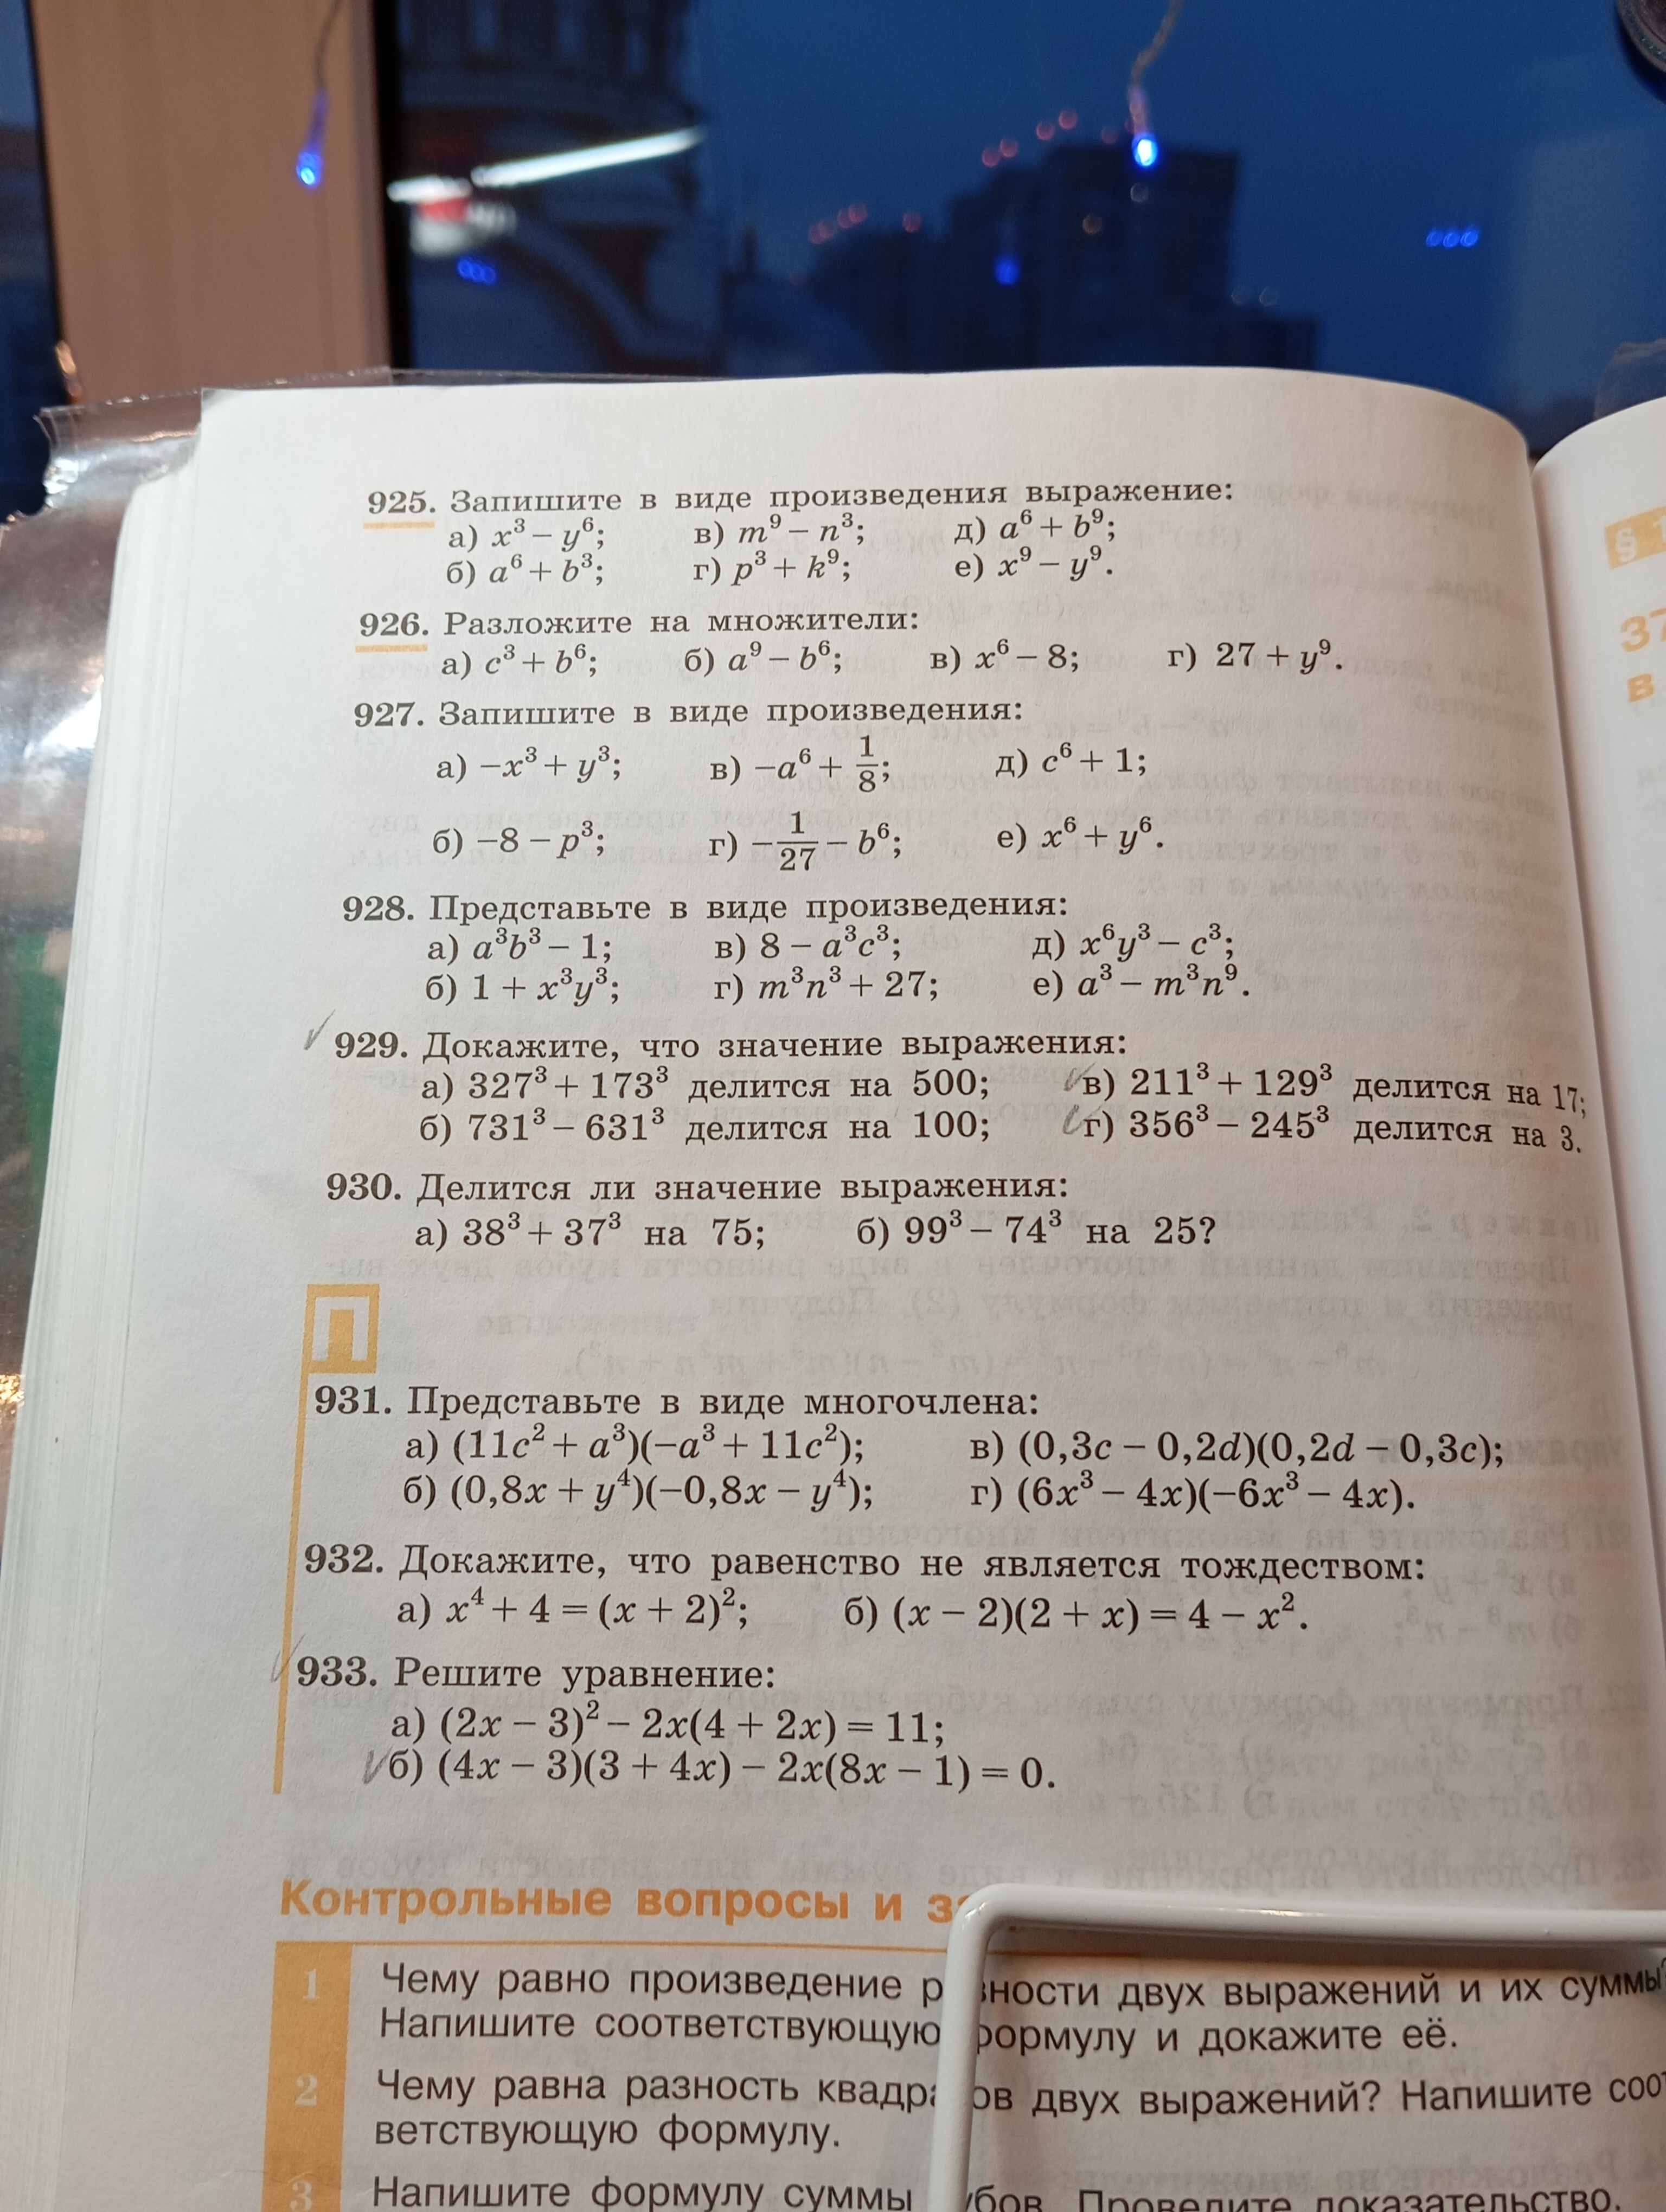 925. Запишите в виде произведения выражение:
а) x³ – y⁶; в) m⁹ – n³; д) a⁶ + b⁹;
б) a⁶ + b³; г) p³ + k⁹; е) x⁹ – y⁹.
926. Разложите на множители:
а) c³ + b⁶; б) a⁹ – b⁶; в) x⁶ – 8; г) 27 + y⁹.
927. Запишите в виде произведения:
а) –x³ + y³; в) –a⁶ + 1/8; д) c⁶ + 1;
б) –8 – p³; г) –1/27 – b⁶; е) x⁶ + y⁶.
928. Представьте в виде произведения:
а) a³b³ – 1; в) 8 – a³c³; д) x⁶y³ – c³;
б) 1 + x³y³; г) m³n³ + 27; е) a³ – m³n⁹.
929. Докажите, что значение выражения:
а) 327³ + 173³ делится на 500; в) 211³ + 129³ делится на 17;
б) 731³ – 631³ делится на 100; г) 356³ – 245³ делится на 3.
930. Делится ли значение выражения:
а) 38³ + 37³ на 75; б) 99³ – 74³ на 25?
П
931. Представьте в виде многочлена:
а) (11c² + a³)(–a³ + 11c²); в) (0,3c – 0,2d)(0,2d – 0,3c);
б) (0,8x + y⁴)(–0,8x – y⁴); г) (6x³ – 4x)(–6x³ – 4x).
932. Докажите, что равенство не является тождеством:
а) x⁴ + 4 = (x + 2)²; б) (x – 2)(2 + x) = 4 – x².
933. Решите уравнение:
а) (2x – 3)² – 2x(4 + 2x) = 11;
б) (4x – 3)(3 + 4x) – 2x(8x – 1) = 0.
Контрольные вопросы и
1 Чему равно произведение двух выражений и их суммы?
Напишите соответствующую формулу и докажите её.
2 Чему равна разность двух выражений? Напишите соот
ветствующую формулу.
3 Напишите формулу суммы Проведите доказательство.
§ 1
37
в